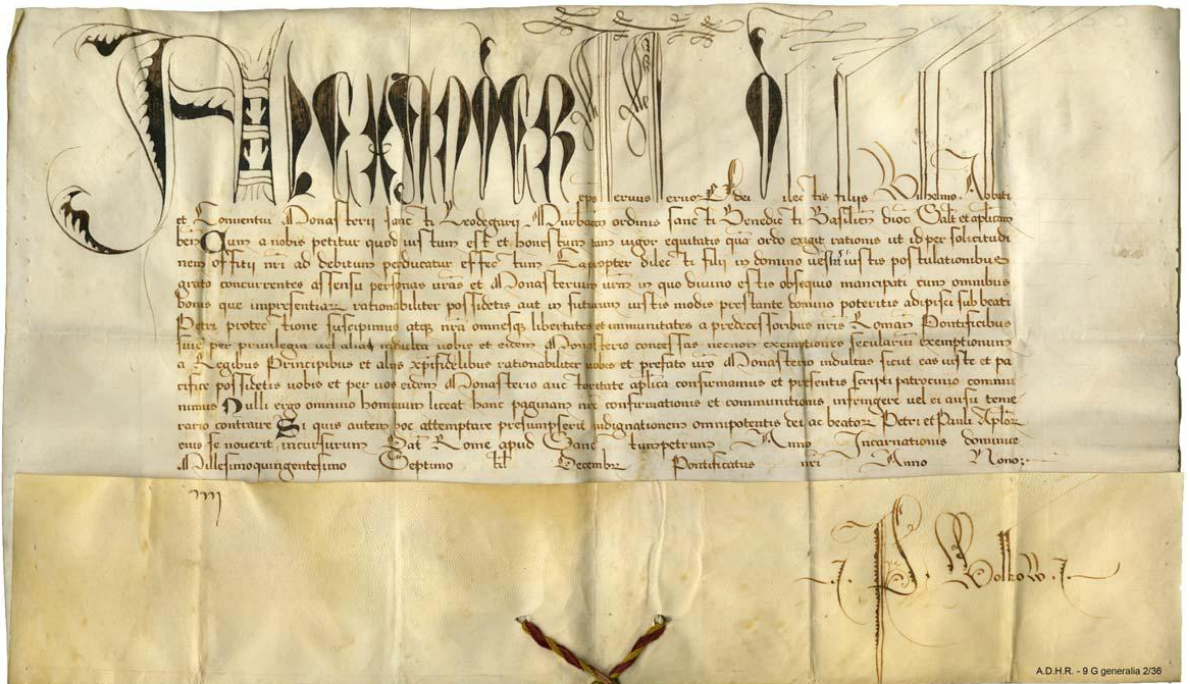 Alexander eps seruus seruor dei Dilectis filijs Wilhelmo Abbati
et Conuentui Monasterij sancti Leodegarij Murbacen ordinis sancti Benedicti Basilien dioc Salt et aplicam
ben Cum a nobis petitur quod iustum est et honestum tam uigor equitatis qua ordo exigit rationis ut id per solicitudi
nem offitii nri ad debitum perducatur effectum Eapropter dilecti filii in domino uestris iustis postulationibus
grato concurrentes assensu personas uras et Monasterium urm in quo diuino estis obsequio mancipati cum omnibus
bonis que impresentiar rationabiliter possidetis aut in futurum iustis modis prestante domino poteritis adipisci sub beati
Petri protectione suscipimus atq nra omnesq libertates et immunitates a predecessoribus nris Roman Pontificibus
siue per priuilegia uel alia indulta uobis et eidem Monasterio concessas necnon exemptiones seculariu exemptionum
a Regibus Principibus et alijs xpifidelibus rationabiliter uobis et prefato uro Monasterio indultas sicut eas iuste et pa
cifice possidetis uobis et per uos eidem Monasterio auctoritate aplica confirmamus et presentis scripti patrocinio commu
nimus Nulli ergo omnino hominum liceat hanc paginam nre confirmationis et communitionis infringere uel ei ausu teme
rario contraire Si quis autem hoc attemptare presumpserit indignationem omnipotentis dei ac beator Petri et Pauli Aplor
eius se nouerit incursurum Dat Rome apud Sanctumpetrum Anno Incarnationis dominice
Millesimoquingentesimo Septimo kl Decembr Pontificatus nri Anno Nono
P. Bolkow
A.D.H.R. - 9 G generalia 2/36